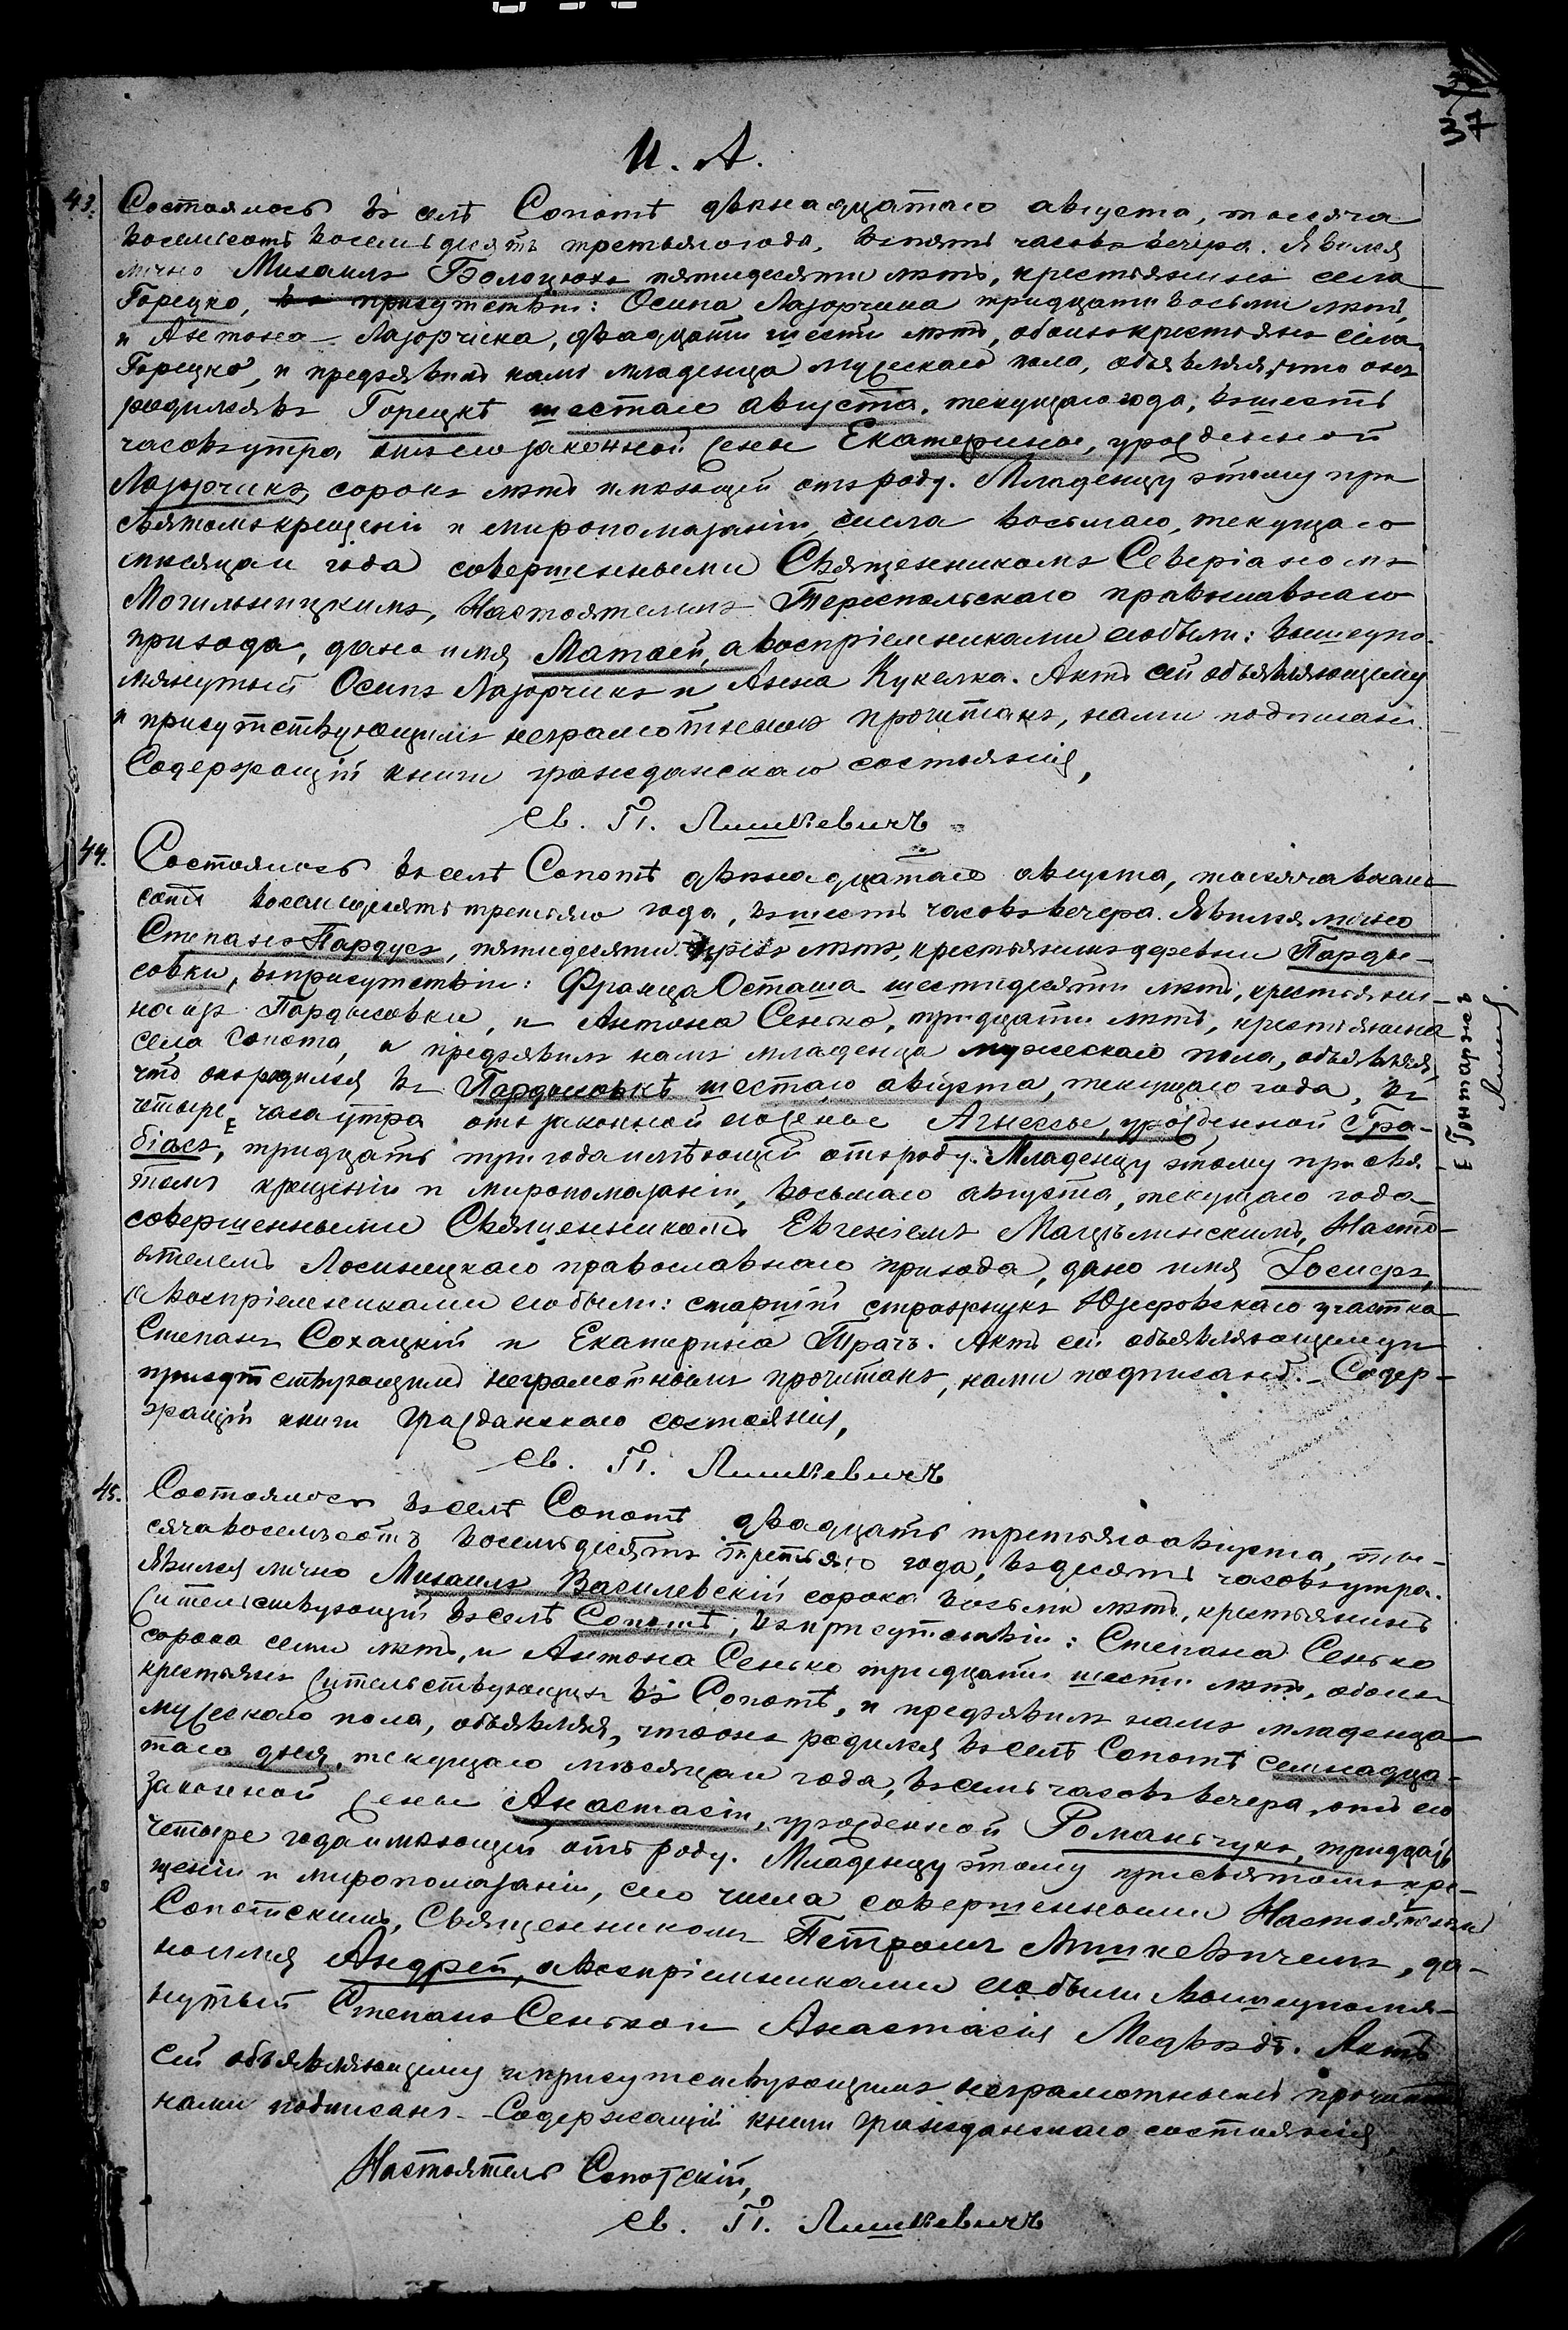 37
И. А.
43. Состоялось въ селѣ Сопотѣ двѣнадцатаго августа, тысяча
восемьсотъ восемьдесятъ третьяго года, въ пять часовъ вечера. Явился
лично Михаилъ Болоцюхъ пятидесяти лѣтъ, крестьянинъ села
Горецко, въ присутствіи: Осипа Лазорчика тридцати восьми лѣтъ,
и Антона Лазорчика, двадцати шести лѣтъ, обоихъ крестьянъ села
Горецко, и предъявилъ намъ младенца мужескаго пола, объявляя, что онъ
родился въ Горецкѣ шестаго августа, текущаго года, въ шесть
часовъ утра отъ его законной жены Екатерины, урожденной
Лазорчикъ, сорокъ лѣтъ имѣющей отъ роду. Младенцу этому при
святомъ крещеніи и миропомазаніи, числа восьмаго, текущаго
мѣсяца и года совершенными Священникомъ Северіаномъ
Могильницкимъ, Настоятелемъ Тереспольскаго православнаго
прихода, дано имя Матѳей, а воспріемниками его были: вышеупо-
мянутый Осипъ Лазорчикъ и Анна Кукелка. Актъ сей объявляющему
и присутствующимъ неграмотнымъ прочитанъ, нами подписанъ.
Содержащій книги гражданскаго состоянія,
св. П. Лишкевичъ
44. Состоялось въ селѣ Сопотѣ двѣнадцатаго августа, тысяча восемь-
сотъ восемьдесятъ третьяго года, въ шесть часовъ вечера. Явился лично
Степанъ Пардусъ, пятидесяти трехъ лѣтъ, крестьянинъ деревни Парды-
совки, въ присутствіи: Франца Осташа шестидесяти лѣтъ, крестьяни-
на изъ Пардысовки, и Антона Сенько, тридцати лѣтъ, крестьянина
села Сопота, и предъявилъ намъ младенца мужескаго пола, объявляя,
что онъ родился въ Пардысовкѣ шестаго августа, текущаго года, въ
четыре часа утра отъ законной его жены Агнессы, урожденной Гра-
біасъ, тридцать три года имѣющей отъ роду. Младенцу этому при свя-
томъ крещеніи и миропомазаніи, восьмаго августа, текущаго года
совершенными Священникомъ Евгеніемъ Мацѣлинскимъ, Насто-
ятелемъ Лосинецкаго православнаго прихода, дано имя Іосифъ,
а воспріемниками его были: старшій стражникъ Юзефовскаго участка
Степанъ Сохацкій и Екатерина Трачъ. Актъ сей объявляющему и
присутствующимъ неграмотнымъ прочитанъ, нами подписанъ. Содер-
жащій книги гражданскаго состоянія,
св. П. Лишкевичъ
45. Состоялось въ селѣ Сопотѣ двадцать третьяго августа, ты-
сяча восемьсотъ восемьдесятъ третьяго года, въ десять часовъ утра.
Явился лично Михаилъ Василевскій сорока восьми лѣтъ, крестьянинъ
жительствующій въ селѣ Сопотѣ, въ присутствіи: Степана Сенько
сорока семи лѣтъ, и Антона Сенько тридцати шести лѣтъ, обоихъ
крестьянъ жительствующихъ въ Сопотѣ, и предъявилъ намъ младенца
мужескаго пола, объявляя, что онъ родился въ селѣ Сопотѣ семнадца-
таго дня, текущаго мѣсяца и года, въ семь часовъ вечера, отъ его
законной жены Анастасіи, урожденной Романчукъ, тридцать
четыре года имѣющей отъ роду. Младенцу этому при святомъ кре-
щеніи и миропомазаніи, сего числа совершенными Настоятелемъ
Сопотскимъ, Священникомъ Петромъ Лишкевичемъ, да-
но имя Андрей, а воспріемниками его были вышеупомя-
нутый Степанъ Сенько и Анастасія Медвѣдь. Актъ
сей объявляющему и присутствующимъ неграмотнымъ прочитанъ
нами подписанъ. Содержащій книги гражданскаго состоянія
Настоятель Сопотскій,
св. П. Лишкевичъ